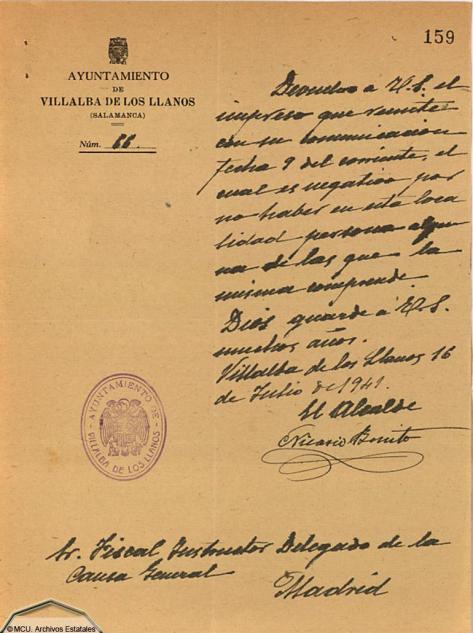 159
AYUNTAMIENTO
DE
VILLALBA DE LOS LLANOS
(SALAMANCA)
Núm. 66.
Devuelvo a V.S. el
impreso que remite
con su comunicación
fecha 9 del corriente, el
cual es negativo por
no haber en esta loca
lidad persona algu
na de las que la
misma comprende.
Dios guarde a V.S.
muchos años.
Villalba de los Llanos 16
de Julio de 1941.
El Alcalde
Bonito
AYUNTAMIENTO DE
VILLALBA DE LOS LLANOS
Sr. Fiscal Instructor Delegado de la
Causa General
Madrid
© MCU. Archivos Estatales